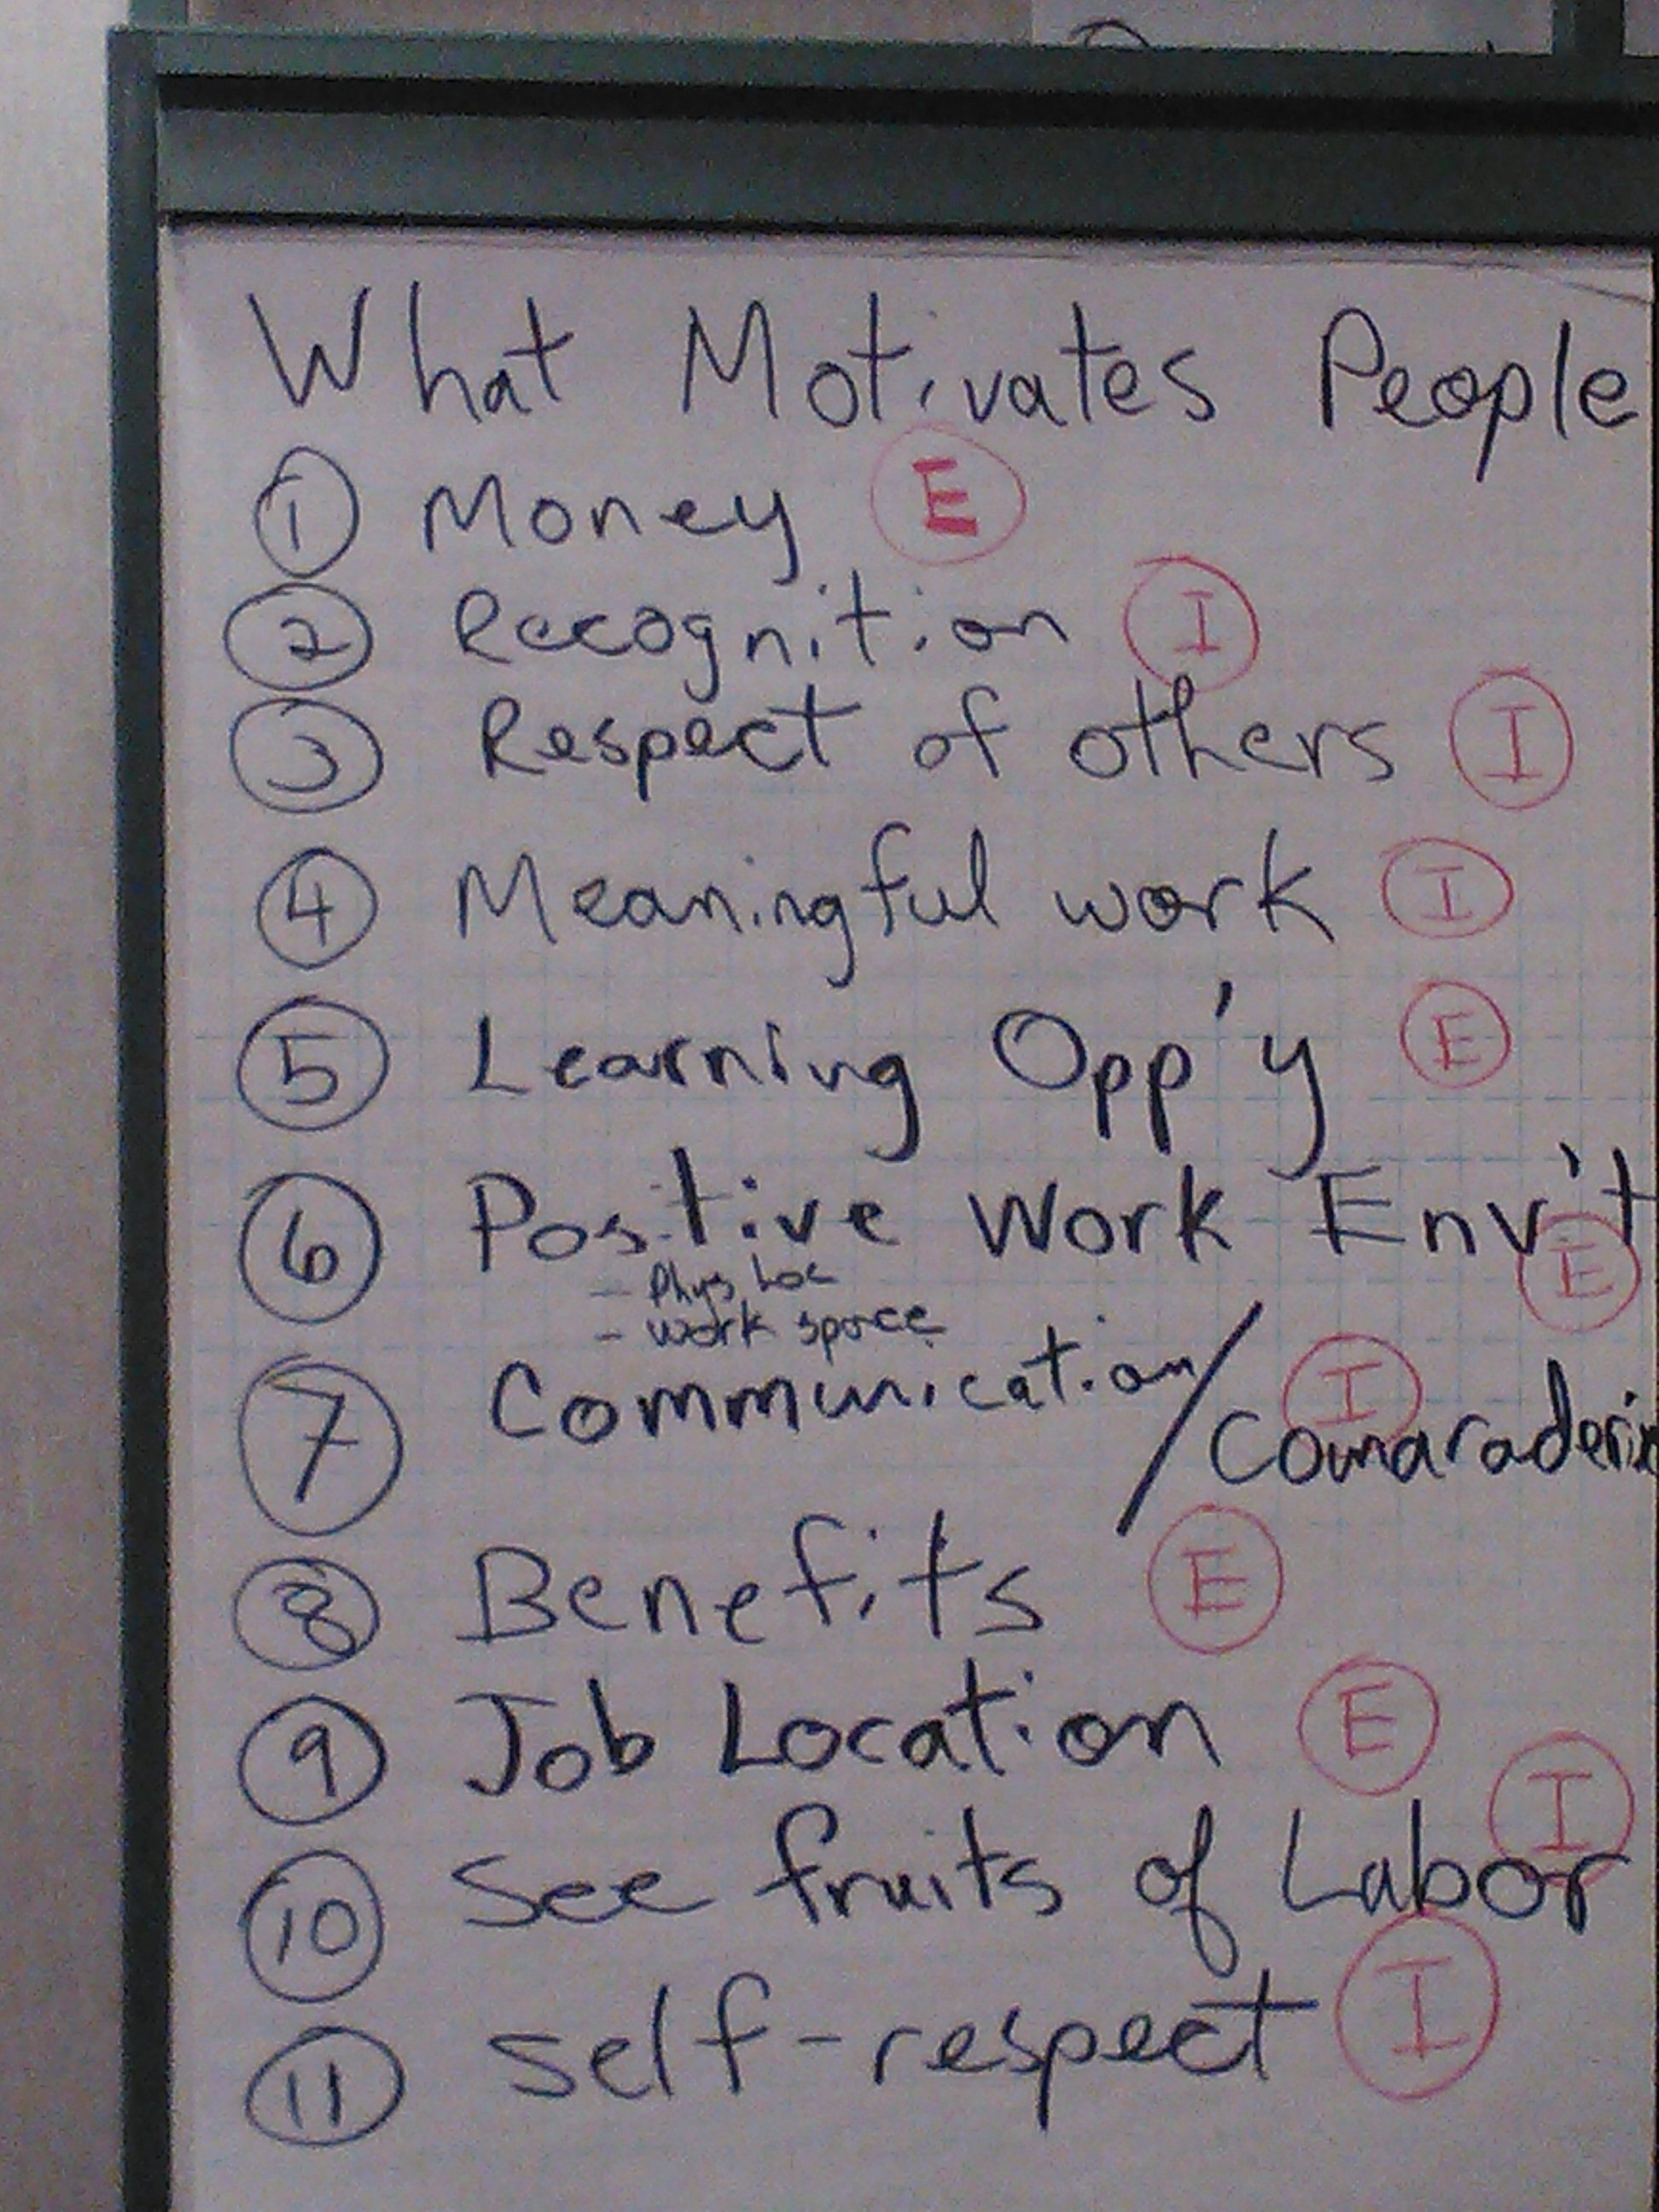 What Motivates People
① Money Ⓔ
② Recognition Ⓘ
③ Respect of others Ⓘ
④ Meaningful work Ⓘ
⑤ Learning Opp'y Ⓔ
⑥ Positive Work Env't Ⓔ
- Phys Loc
- work space
⑦ Communication/Comaraderie Ⓘ
⑧ Benefits Ⓔ
⑨ Job Location Ⓔ
⑩ See fruits of Labor Ⓘ
⑪ self-respect Ⓘ